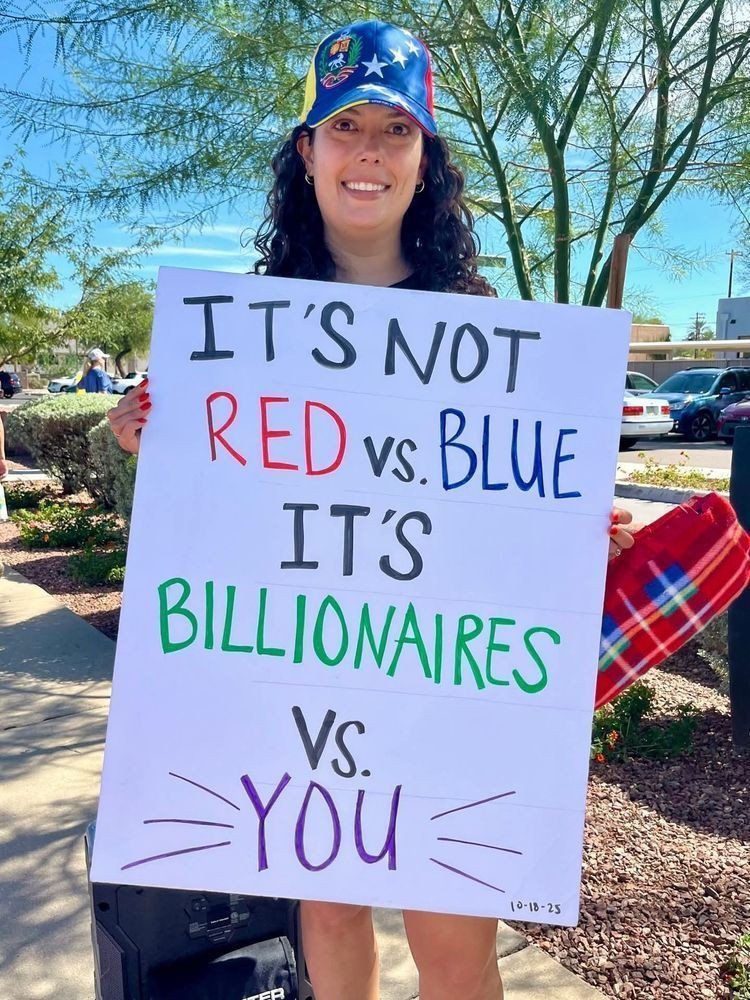 IT'S NOT
RED vs. BLUE
IT'S
BILLIONAIRES
VS.
YOU
10-18-25